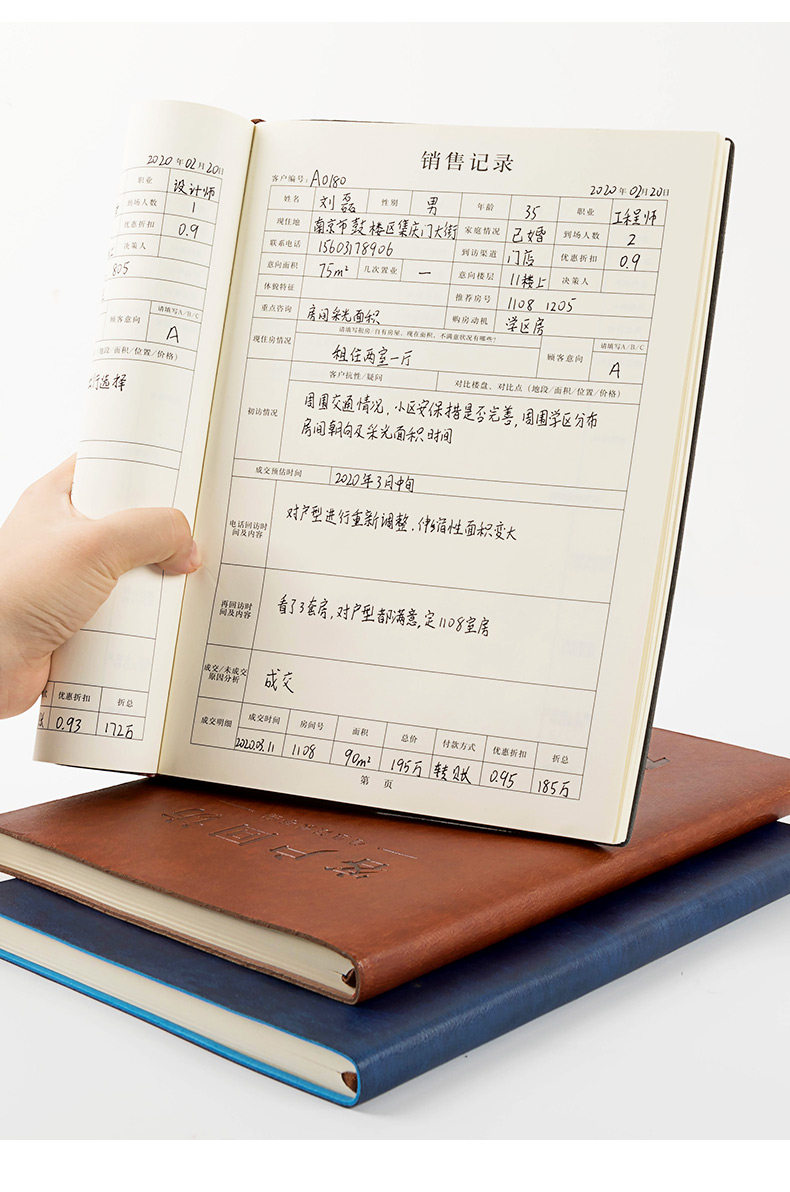 2020年02月20日
职业 设计师
到场人数 1
优惠折扣 0.9
决策人
805
请填写A/B/C
顾客意向 A
地段/面积/位置/价格)
行选择
优惠折扣 折总
0.93 172万
销售记录
客户编号: A0180 2020年02月20日
姓名 刘磊 性别 男 年龄 35 职业 工程师
现住地 南京市鼓楼区集庆门大街 家庭情况 已婚 到场人数 2
联系电话 15603178906 到访渠道 门店 优惠折扣 0.9
意向面积 75m² 几次置业 一 意向楼层 11楼上 决策人
体貌特征 推荐房号 1108 1205
重点咨询 房间采光面积 购房动机 学区房
现住房情况 请填写租房/自有房屋、现在面积、不满意状况有哪些? 顾客意向 请填写A/B/C
租住两室一厅 A
客户抗性/疑问 对比楼盘、对比点(地段/面积/位置/价格)
初访情况 周围交通情况,小区安保措是否完善,周围学区分布
房间朝向及采光面积时间
成交预估时间 2020年3月中旬
电话回访时间及内容 对户型进行重新调整,伸缩性面积变大
再回访时间及内容 看了3套房,对户型都满意,定1108室房
成交/未成交原因分析 成交
成交明细 成交时间 房间号 面积 总价 付款方式 优惠折扣 折总
2020.03.11 1108 90m² 195万 转账 0.95 185万
第 页
客户回访